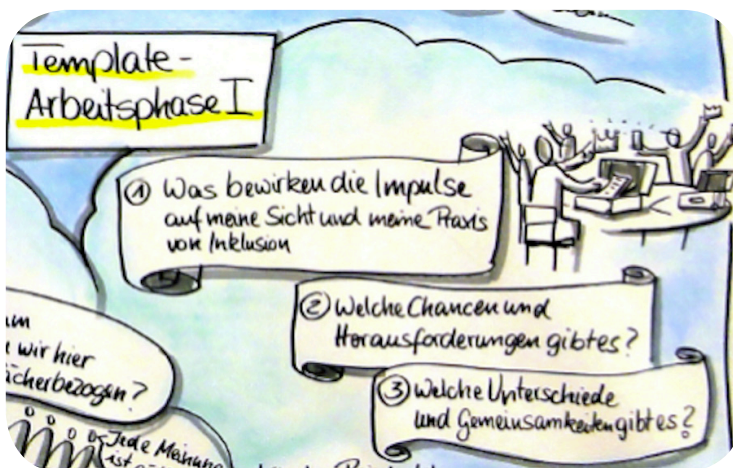 Template-
Arbeitsphase I
① Was bewirken die Impulse
auf meine Sicht und meine Praxis
von Inklusion
② Welche Chancen und
Herausforderungen gibt es?
③ Welche Unterschiede
und Gemeinsamkeiten gibt es?
wir hier
ächerbezogen?
Jede Meinung
ist